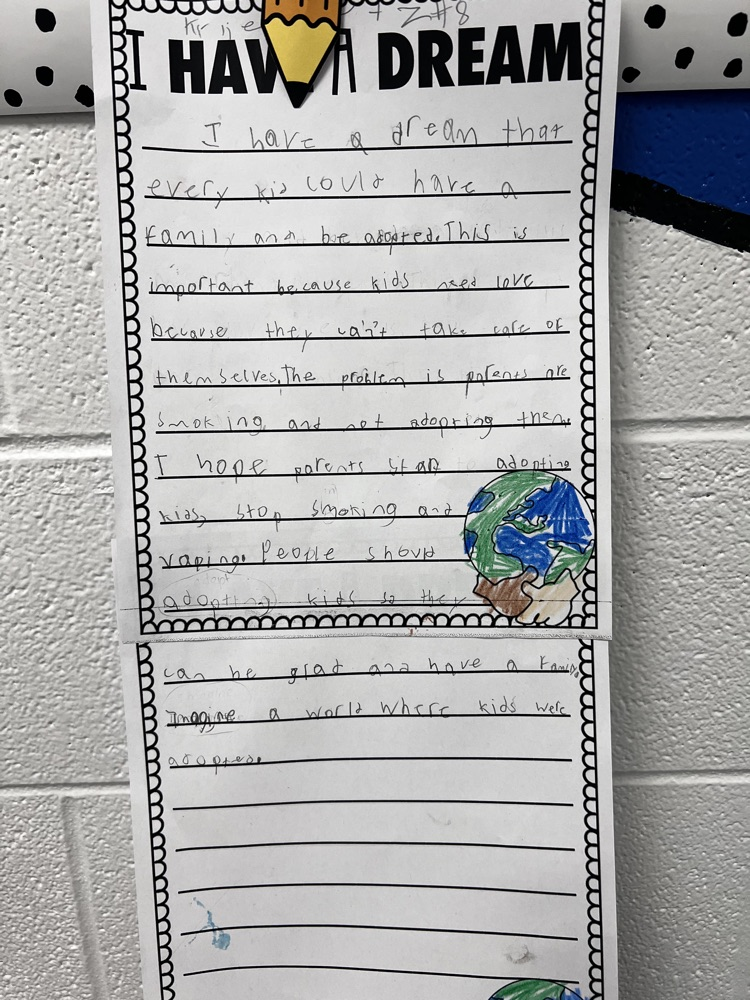 Z #8
I HAVE A DREAM
I have a dream that
every kid could have a
family and be adopted. This is
important because kids need love
because they can't take care of
themselves. The problem is parents are
smoking and not adopting them.
I hope parents start adopting
kids, stop smoking and
vaping. People should
adopting kids so they
can be glad and have a family.
Imagine a world where kids were
adopted.